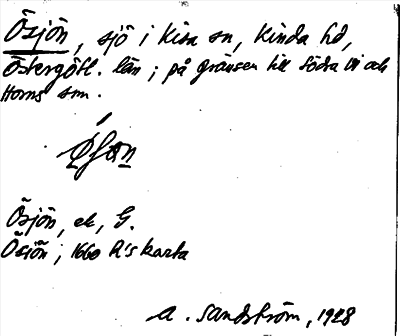 Ösjön, sjö i Kisa sn, Kinda hd,
Östergötl. län; på gränsen till Södra Vi och
Horns snr.
Ösjön, ek, G.
Ösiön; 1660 R's karta
A. Sandström, 1928